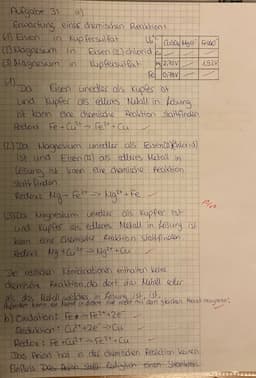 Aufgabe 3) a)
Erwartung einer chemischen Reaktion:
(1) Eisen in Kupfersulfat
(2) Magnesium in Eisen(II)chlorid
(3) Magnesium in Kupfersulfat
CuSO₄ Mg²⁺ FeSO₄
Mg 2,70V
Fe 0,78V
(1) Da Eisen unedler als Kupfer ist
und Kupfer als edleres Metall in Lösung
ist kann eine chemische Reaktion stattfinden
Redox: Fe + Cu²⁺ → Fe²⁺ + Cu
(2) Da Magnesium unedler als Eisen(II)chlorid
ist und Eisen(II) als edleres Metall in
Lösung ist kann eine chemische Reaktion
stattfinden
Redox: Mg + Fe²⁺ → Mg²⁺ + Fe
(3) Da Magnesium unedler als Kupfer ist
und Kupfer als edleres Metall in Lösung ist
kann eine chemische Reaktion stattfinden
Redox: Mg + Cu²⁺ → Mg²⁺ + Cu
Die restlichen Kombinationen enthalten keine
chemische Reaktion, da dort das Metall edler
als das Metall welches in Lösung ist, ist.
b) Oxidation: Fe → Fe²⁺ + 2e⁻
Reduktion: Cu²⁺ + 2e⁻ → Cu
Redox: Fe + Cu²⁺ → Fe²⁺ + Cu
Das Anion hat in der chemischen Reaktion keinen
Einfluss.